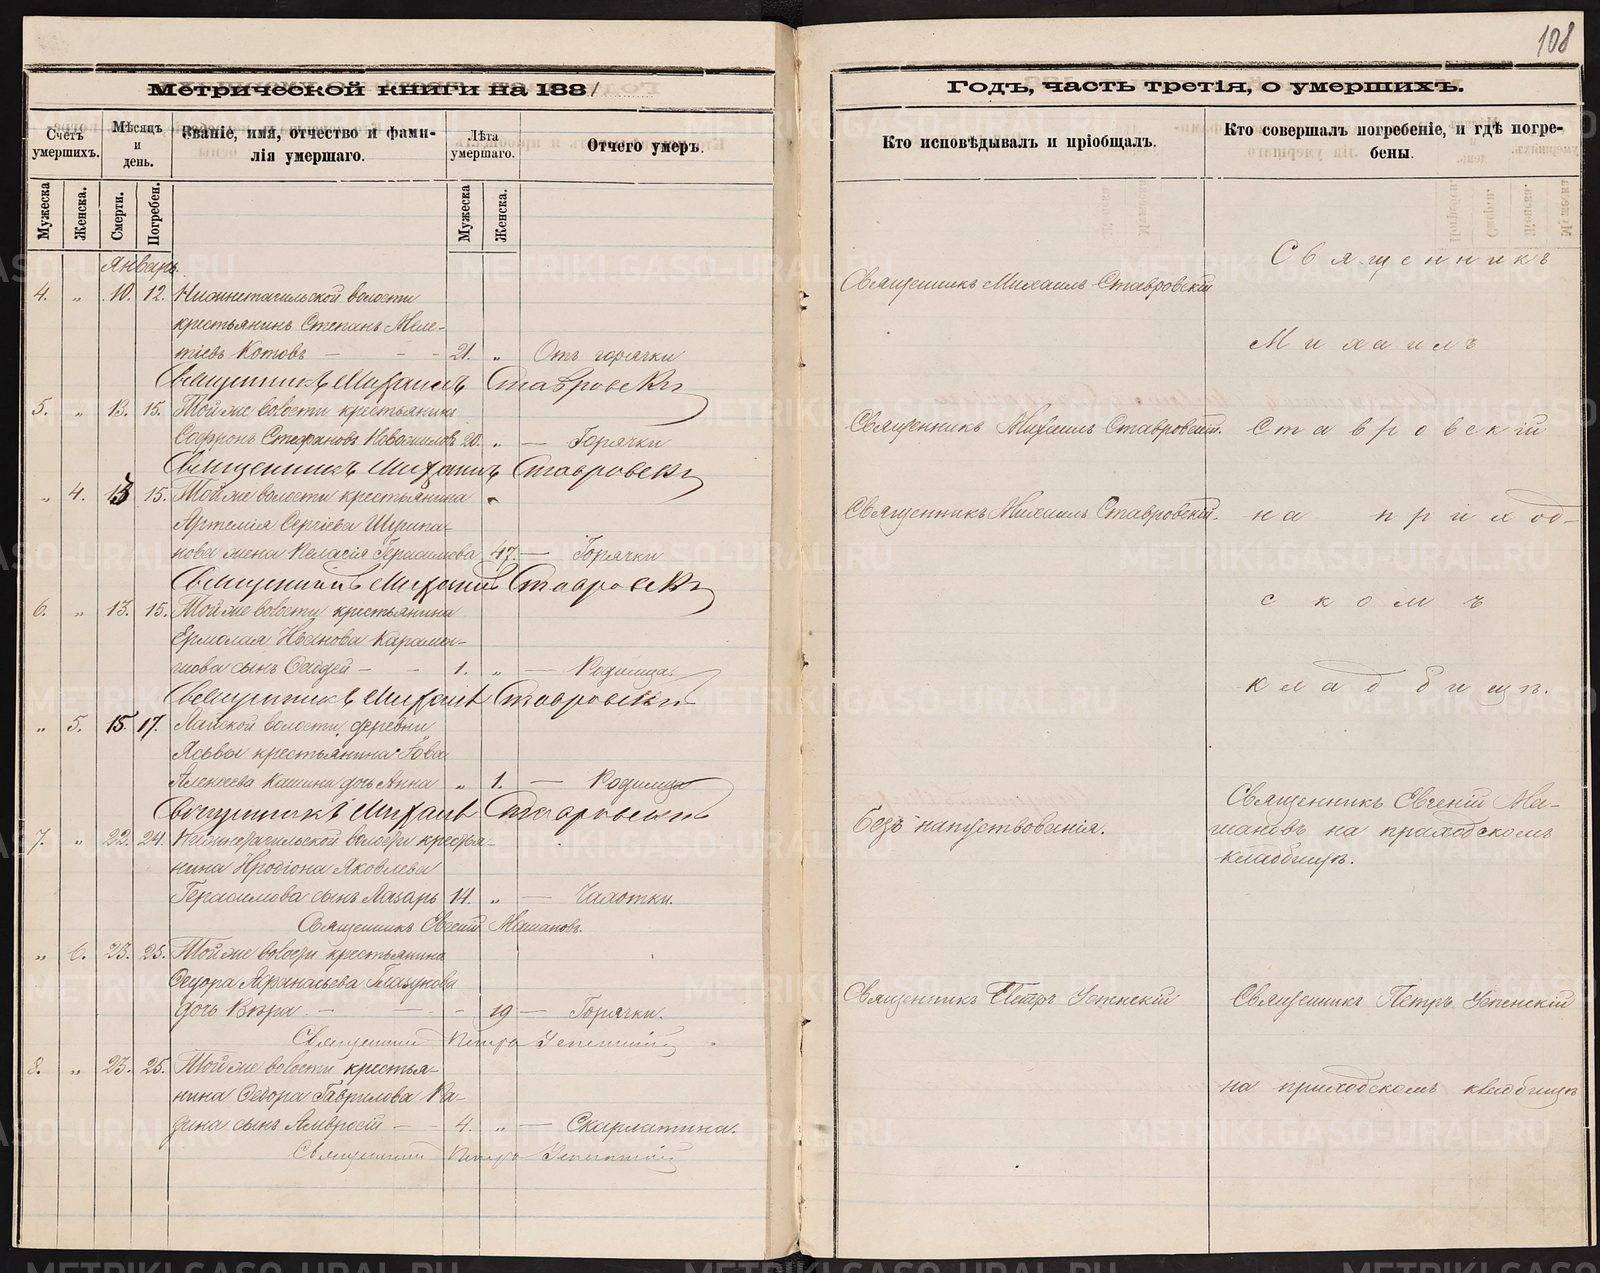 108
Метрической книги на 1881
Годъ, часть третія, о умершихъ.
Счетъ умершихъ.
Мѣсяцъ и день.
Званіе, имя, отчество и фами-
лія умершаго.
Лѣта умершаго.
Отчего умеръ.
Кто исповѣдывалъ и пріобщалъ.
Кто совершалъ погребеніе, и гдѣ погре-
бены.
Мужеска
Женска.
Смерти.
Погребен.
Мужеска
Женска.
Январь.
4. „ 10. 12. Нижнетагильской волости
крестьянинъ Степанъ Меле-
тіевъ Котовъ — 21. „ Отъ горячки
Священникъ Михаилъ Ставровскій
5. „ 13. 15. Той же волости крестьянинъ
Софронъ Стефановъ 20. „ — Горячки
Священникъ Михаилъ Ставровскій
„ 4. 13 15. Той же волости крестьянина
Артемія Сергіева
жена Пелагія Герасимова 47. — Горячки
Священникъ Михаилъ Ставровскій
6. „ 13. 15. Той же волости крестьянина
Ермолая Иванова
сынъ — 1. „ — Родимца.
Священникъ Михаилъ Ставровскій
„ 5. 15. 17. Лайской волости, деревни
крестьянина Іова
Алексеева Кашина дочь Анна „ 1. — Родимца
Священникъ Михаилъ Ставровскій
7. „ 22. 24. Нижнетагильской волости крестья-
нина Иродіона Яковлева
Герасимова сынъ Лазарь 14. „ — Чахотки.
Священникъ Евгеній
„ 6. 23. 25. Той же волости крестьянина
Федора Афанасьева
дочь Вѣра — 19 — Горячки.
Священникъ Петръ Успенскій
8. „ 23. 25. Той же волости крестья-
нина Федора Гаврилова
сынъ Амвросій — 4. „ — Скарлатина.
Священникъ Петръ Успенскій
Священникъ Михаилъ Ставровскій
Священникъ Михаилъ Ставровскій.
Священникъ Михаилъ Ставровскій.
Безъ напутствованія.
Священникъ Петръ Успенскій
Священникъ
Михаилъ
Ставровскій
на приход-
скомъ
кладбищѣ.
Священникъ Евгеній
на приходскомъ
кладбищѣ.
Священникъ Петръ Успенскій
на приходскомъ кладбищѣ
METRIKI.GASO-URAL.RU